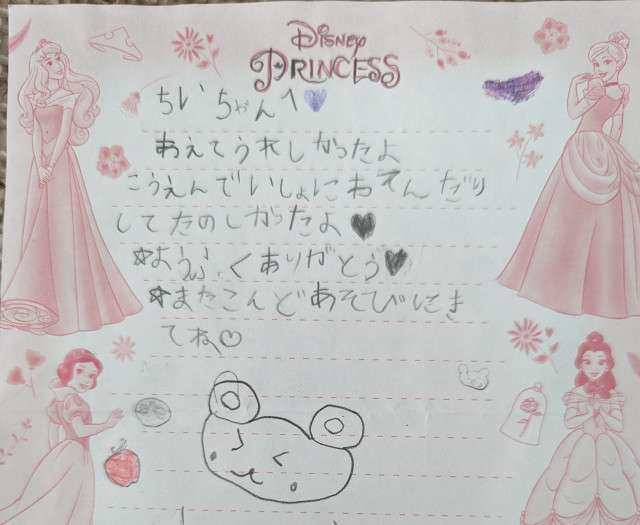 Disney
PRINCESS
ちいちゃんへ
あえてうれしかったよ
こうえんでいしょにおそんだり
してたのしかったよ
ようふくありがとう
またこんどあそびにき
てね